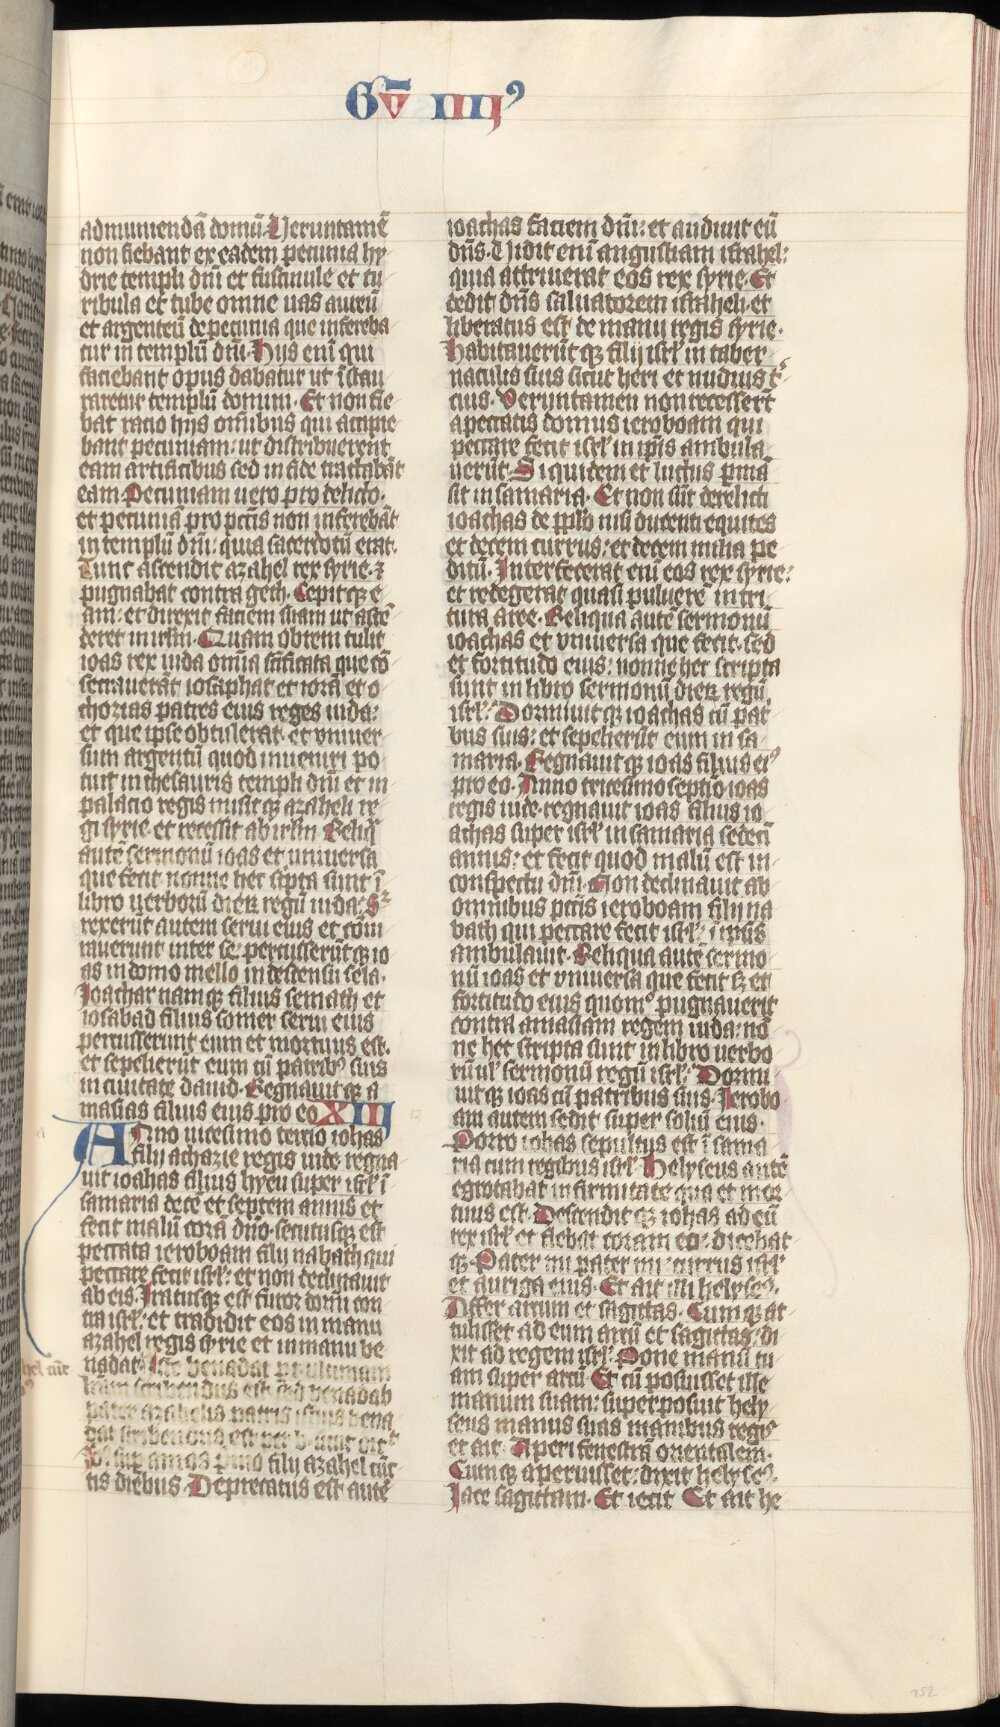 Gͦ v̄ IIIIꝰ
ad muniendā domū. Veruntamē
non fiebant ex eadem pecunia hy
drie templi dn̄i et fuscinule et tu
ribula et tube omne uas aureū
et argenteū de pecunia que infereba
tur in templū dn̄i. Hijs enī qui
faciebant opus dabatur ut īstau
raretur templū domini. Et non fie
bat racio hijs omībus qui accipie
bant pecuniam: ut distribuerent
eam artificibus sed in fide tractabāt
eam. Pecuniam uero pro delicto.
et pecuniā pro pctīs non inferebāt
in templū dn̄i: quia sacerdotū erat.
Tunc ascendit azahel rex syrie. ⁊
pugnabat contra geth. Cepitqꝫ e
am: et direxit faciem suam ut ascē
deret in irlm̄. Quam obrem tulit
ioas rex iuda omīa sc̄ificata que cō
secrauerāt iosaphat et iorā et o
chozias patres eius reges iuda:
et que ipse obtulerat. et vniuer
sum argentū quod inueniri po
tuit in thesauris templi dn̄i et in
palacio regis misitqꝫ azaheli re
gi syrie. et recessit ab irlm̄. Reliq̄
autē sermonū ioas et uniuersa
que fecit. nonne hec sc̄pta sunt ī
libro uerborū dieꝝ regū iuda:
rexerūt autem serui eius et cōiu
rauerunt inter se. percusserūtqꝫ io
as in domo mello in descensu sela.
Ioachar namqꝫ filius semath et
iosabad filius somer serui eius
percusserunt eum et mortuus est.
et sepelierūt eum cū patribꝰ suis
in ciuitate dauid. Regnauitqꝫ a
masias filius eius pro eo XIIJ
Anno uicesimo tercio iohas
filij achazie regis iude regna
uit ioahas filius hyeu super isrl̄ ī
samaria decē et septem annis et
fecit malū corā dn̄o. secutusqꝫ est
peccata ieroboam filij nabath qui
peccare fecit isrl̄: et non declinauit
ab eis. Iratusqꝫ est furor domī con
tra isrl̄: et tradidit eos in manu
azahel regis syrie et in manu be
nadat. Iste benadat
scribendus est sed benadab
pater azahelis patris istius bena
dat
filij azahel cūc
tis diebus. Deprecatus est autē
ioachas faciem dn̄i: et audiuit eū
dn̄s. Uidit enī angustiam israhel:
quia attriuerat eos rex syrie. Et
dedit dn̄s saluatorem israheli. et
liberatus est de manu regis syrie.
Habitauerūtqꝫ filij isrl̄ in taber
naculis suis sicut heri et nudius t̄
cius. Veruntamen non recesserūt
a peccatis domus ieroboam qui
peccare fecit isrl̄ in ipīs ambula
uerūt. Siquidem et lucus pmā
sit in samaria. Et non sūt derelicti
ioachas de pplo nisi ducenti equites
et decem currus: et decem milia pe
ditū. Interfecerat enī eos rex syrie:
et redegerat quasi puluerē in tri
tura aree. Reliqua autē sermonū
ioachas et vniuersa que fecit. sed
et fortitudo eius: nonne hec scripta
sunt in libro sermonū dieꝝ regū.
isrl̄: Dormiuitqꝫ ioachas cū pat
bus suis: et sepelierūt eum in sa
maria. Regnauitqꝫ ioas filius eiꝰ
pro eo. Anno tricesimo septīo ioas
regis iude. regnauit ioas filius io
achas super isrl̄ in samaria sedecī
annis: et fecit quod malū est in
conspectu dn̄i. Non declinauit ab
omnibus pctīs ieroboam filij na
bath qui peccare fecit isrl̄: ī ipīs
ambulauit. Reliqua autē sermo
nū ioas et vniuersa que fecit sꝫ et
fortitudo eius quomꝰ pugnauerit
contra amasiam regem iuda: nō
ne hec scripta sunt in libro uerbo
rū ul̄ sermonū regū isrl̄: Dormi
uitqꝫ ioas cū patribus suis. Ierobo
am autem sedit super soliū eius.
Porro iohas sepultus est ī sama
ria cum regibus isrl̄. Helyseus autē
egrotabat infirmitate qua et mor
tuus est. Descenditqꝫ iohas ad eū
rex isrl̄ et flebat coram eo: dicebat
qꝫ. Pater mi pater mi: currus isrl̄
et auriga eius. Et ait illi helyseꝰ.
Affer arcum et sagittas. Cumqꝫ at
tulisset ad eum arcū et sagittas: di
xit ad regem isrl̄. Pone manū tu
am super arcū. Et cū posuisset ille
manum suam: superposuit hely
seus manus suas manibus regꝭ
et ait. Aperi fenestrā orientalem.
Cumqꝫ aperuisset: dixit helyseꝰ.
Iace sagittam. Et iecit. Et ait he
252